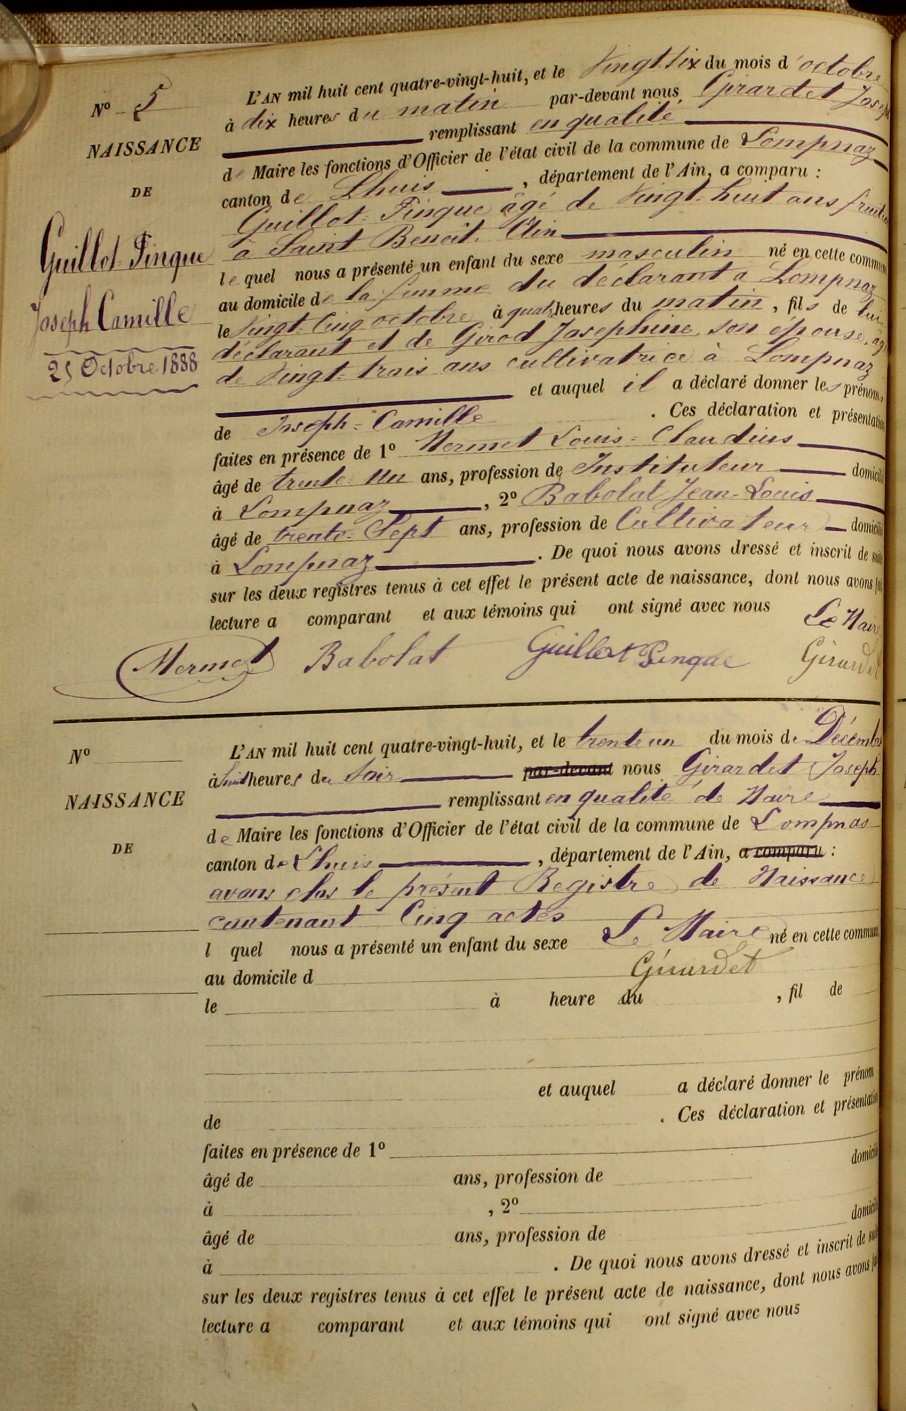 Nº 5
NAISSANCE
DE
Guillot-Pinque
Joseph Camille
25 Octobre 1888
L'AN mil huit cent quatre-vingt-huit, et le Vingt-six du mois d'octobre
à dix heures du matin par-devant nous Girardet Joseph
remplissant en qualité
de Maire les fonctions d'Officier de l'état civil de la commune de Lompnaz
canton de Lhuis, département de l'Ain, a comparu :
Guillot-Pinque âgé de Vingt-huit ans
à Saint Benoit. Ain
lequel nous a présenté un enfant du sexe masculin né en cette commune
au domicile de la femme du déclarant à Lompnaz
le Vingt-Cinq octobre à quatre heures du matin, fils de lui
déclarant et de Girod Josephine, son épouse, agée
de Vingt-trois ans cultivatrice à Lompnaz
et auquel il a déclaré donner les prénoms
de Joseph-Camille. Ces déclaration et présentation
faites en présence de 1º Mermet Louis-Claudius
âgé de trente-un ans, profession de Instituteur domicilié
à Lompnaz, 2º Babolat Jean-Louis
âgé de trente-Sept ans, profession de Cultivateur domicilié
à Lompnaz. De quoi nous avons dressé et inscrit de suite
sur les deux registres tenus à cet effet le présent acte de naissance, dont nous avons fait
lecture a comparant et aux témoins qui ont signé avec nous
Le Maire
Mermet Babolat Guillot Pinque Girardet
Nº
NAISSANCE
DE
L'AN mil huit cent quatre-vingt-huit, et le trente un du mois de Décembre
à huit heures du Soir par-devant nous Girardet Joseph
remplissant en qualité de Maire
de Maire les fonctions d'Officier de l'état civil de la commune de Lompnas
canton de Lhuis, département de l'Ain, a comparu :
avons clos le présent Registre de Naissance
contenant Cinq actes
l quel nous a présenté un enfant du sexe Le Maire né en cette commune
au domicile d Girardet
le à heure du , fil de
et auquel a déclaré donner le prénom
de . Ces déclaration et présentation
faites en présence de 1º
âgé de ans, profession de domicilié
à , 2º
âgé de ans, profession de domicilié
à . De quoi nous avons dressé et inscrit de suite
sur les deux registres tenus à cet effet le présent acte de naissance, dont nous avons fait
lecture a comparant et aux témoins qui ont signé avec nous